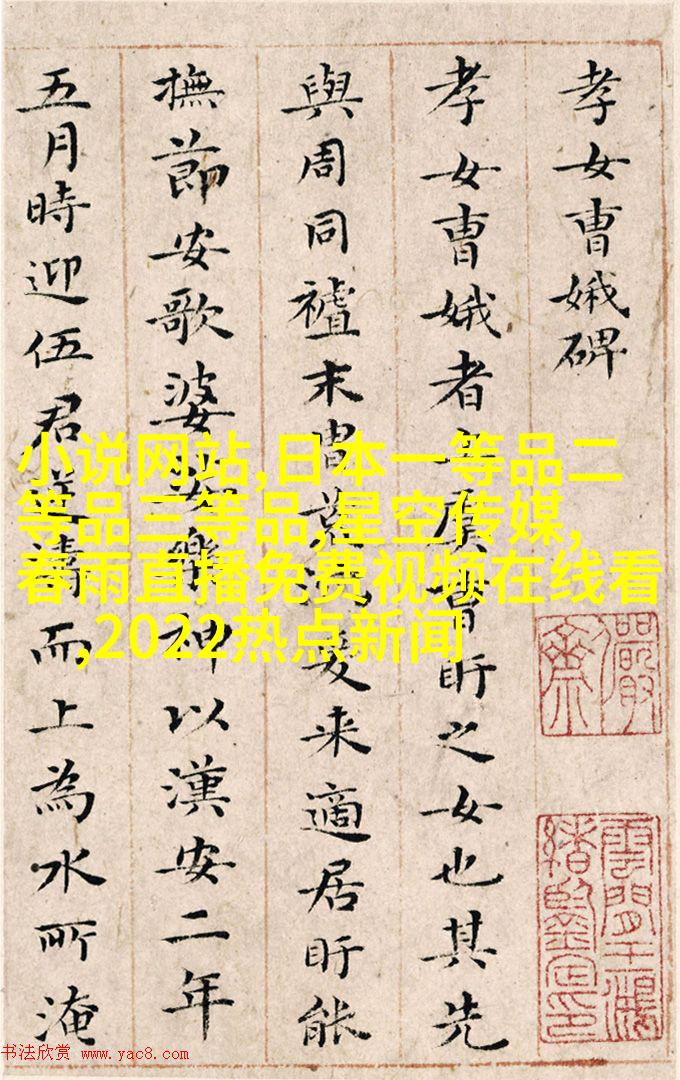 孝女曹娥碑
孝女曹娥者上虞曹盱之女也其先
與周同末胄荒爰来適居盱能
撫節安歌婆娑樂神以漢安二年
五月時迎伍君逆濤而上為水所淹
小说网站,日本一等品二
等品三等品,星空传媒,
春雨直播免费视频在线看
,2022热点新闻
雲間王鴻
緒鑒定印
书法欣赏 www.yac8.com